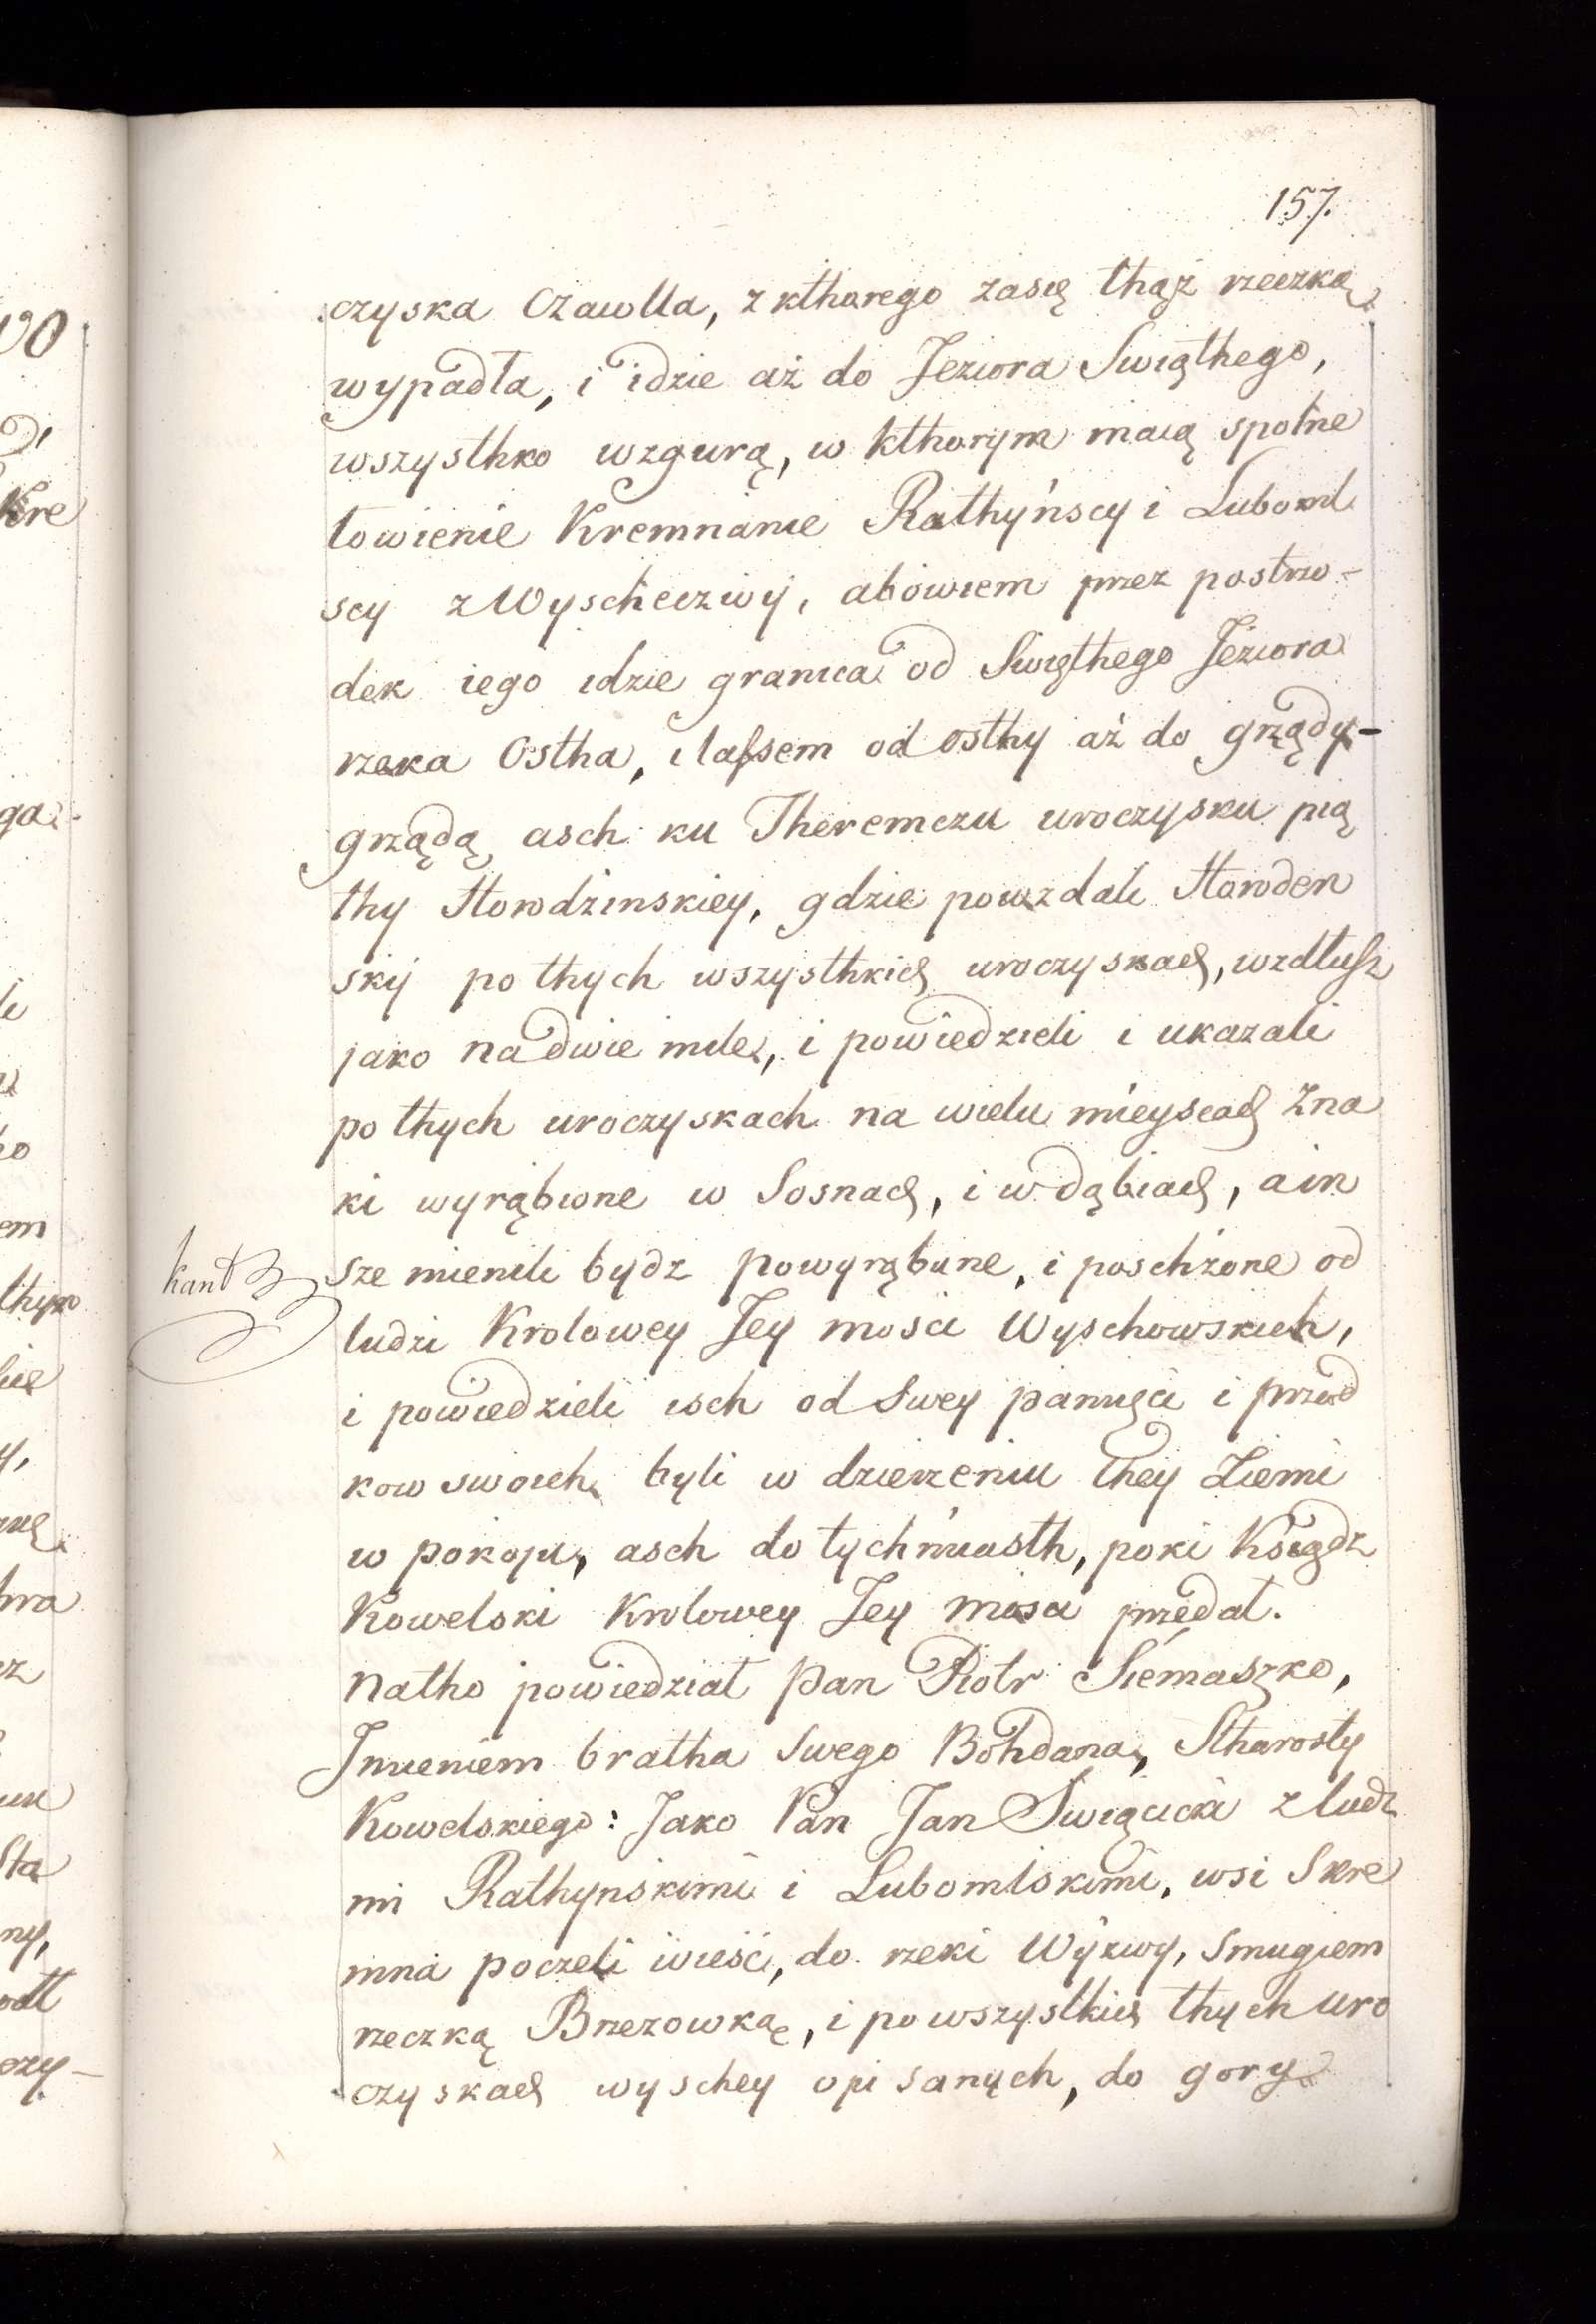 157.
czyska Czawlla, z kthorego zasię thąż rzeczką
wypadła, i idzie aż do Jeziora Swiąthego,
wszysthko wzgurą, w kthorym maią spolne
łowienie Kremnanie Rathyńscy i Luboml
scy z Wyscheczwy, abowiem przez postrzo-
dek iego idzie granica od Swięthego Jeziora
rzeka Ostha, i lassem od Osthy aż do grządy-
grządą asch ku Theremczu uroczysku pią
thy Horodzinskiey, gdzie powzdali Horoden
sky po thych wszysthkich uroczyskach, wzdłusz
jako na dwie mile, i powiedzieli i ukazali
po thych uroczyskach na wielu mieyscach zna
ki wyrąbione w Sosnach, i w dąbiach, a in
sze mienili bydz powyrąbane, i poschżone od
ludzi Krolowey Jey mosci Wyschowskich,
i powiedzieli isch od Swey pamięci i przod
kow swoich byli w dzierzeniu they Ziemi
w pokoju, asch do tychmiasth, poki Książdz
Kowelski Krolowey Jey mosci przedał.
Natho powiedział Pan Piotr Siemaszko,
Jmieniem bratha Swego Bohdana, Stharosty
Kowelskiego: Jako Pan Jan Swiącicki z ludz
mi Rathynskimi i Lubomlskimi, wsi Skre
mna poczeli wieść, do rzeki Wyzwy, Smugiem
rzeczką Brzezowką, i po wszystkich thych uro
czyskach wyschey opisanych, do gory
kant